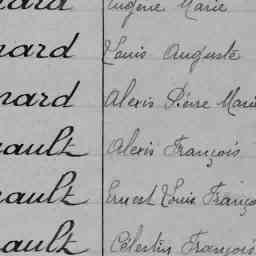 nard Eugène Marie
nard Louis Auguste
nard Alexis Pierre Marie
nault Alexis François
nault Ernest Louis Franço
nault Célestin François